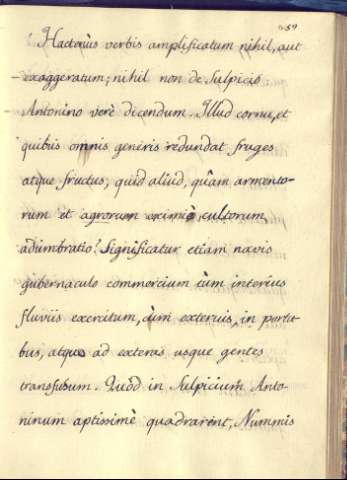 259
Hactenùs verbis amplificatum nihil, aut
exaggeratum; nihil non de Sulpicio
Antonino verè dicendum. Illud cornu, et
quibus omnis generis redundat fruges
atque fructus, quid aliud, quàm armento-
rum et agrorum eximia, cultorum
adumbratio? Significatur etiam navis
gubernaculo commercium cùm interius
fluviis exercitum, cùm exterius, in portu-
bus, atque ad exteras usque gentes
transfusum. Quòd in Sulpicium Anto-
ninum aptissimè quadrarent, Nummis